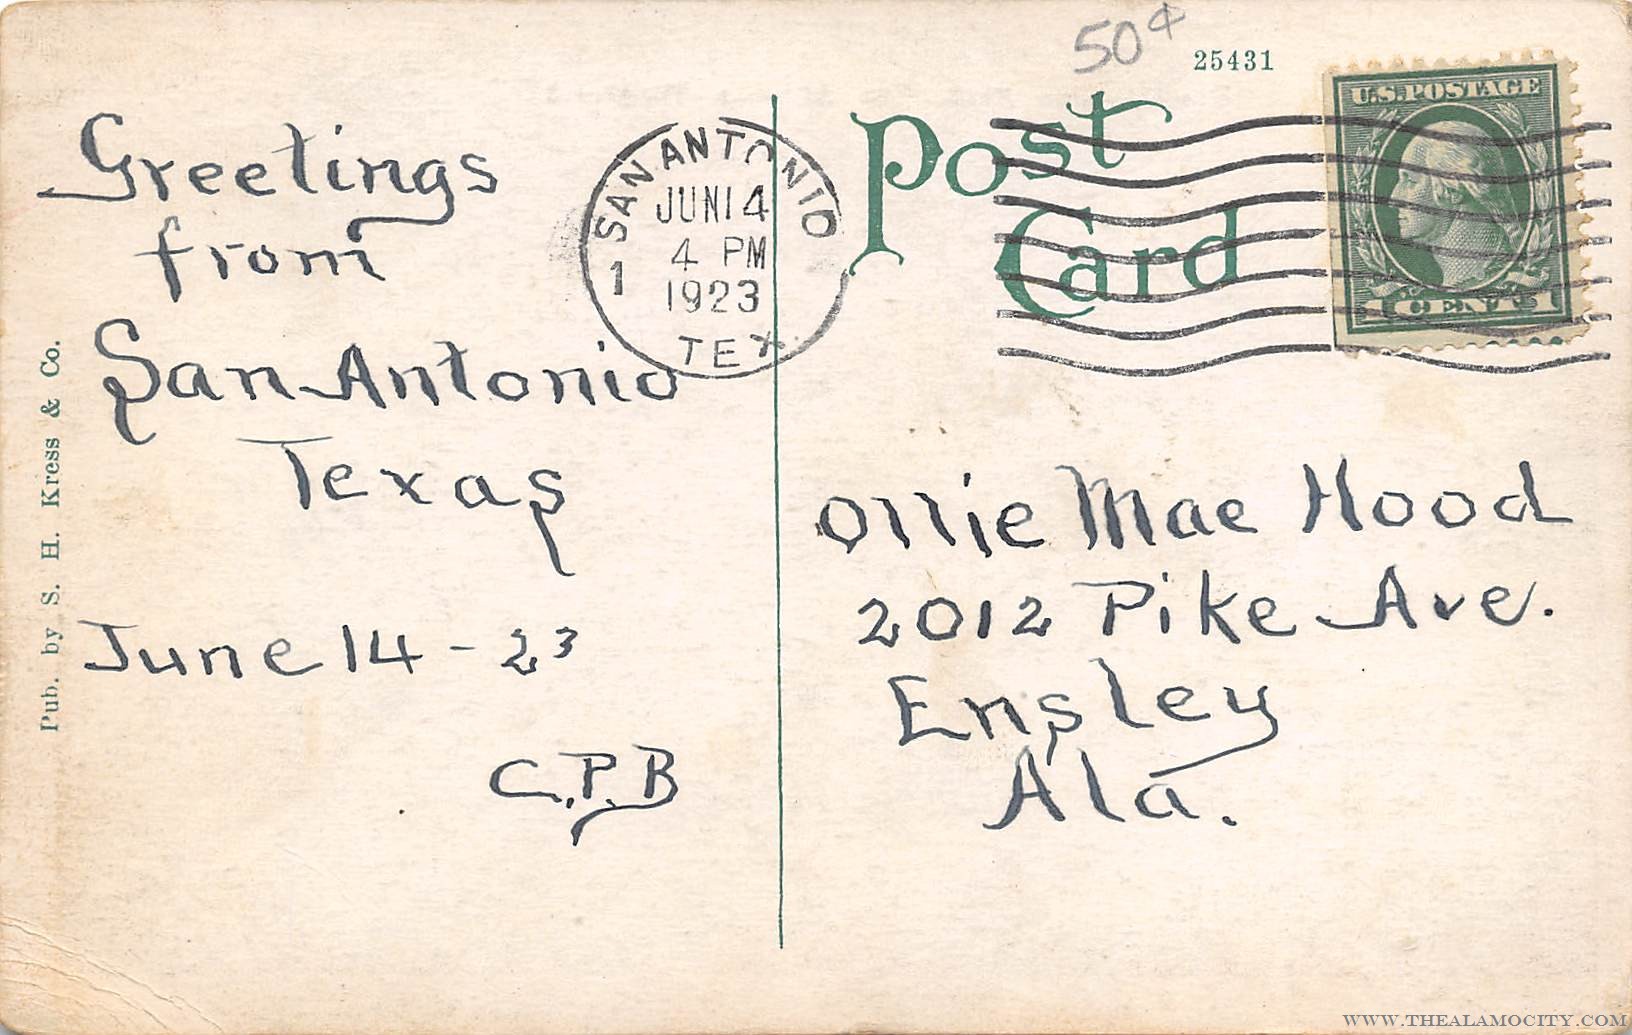 50¢
25431
Post
Card
U.S. POSTAGE
1 CENTS 1
SAN ANTONIO
JUN 14
4 PM
1923
1
TEX.
Greetings
from
San Antonio
Texas
June 14 - 23
C.P.B
Pub. by S. H. Kress & Co.
Ollie Mae Hood
2012 Pike Ave.
Ensley
Ala.
WWW.THEALAMOCITY.COM